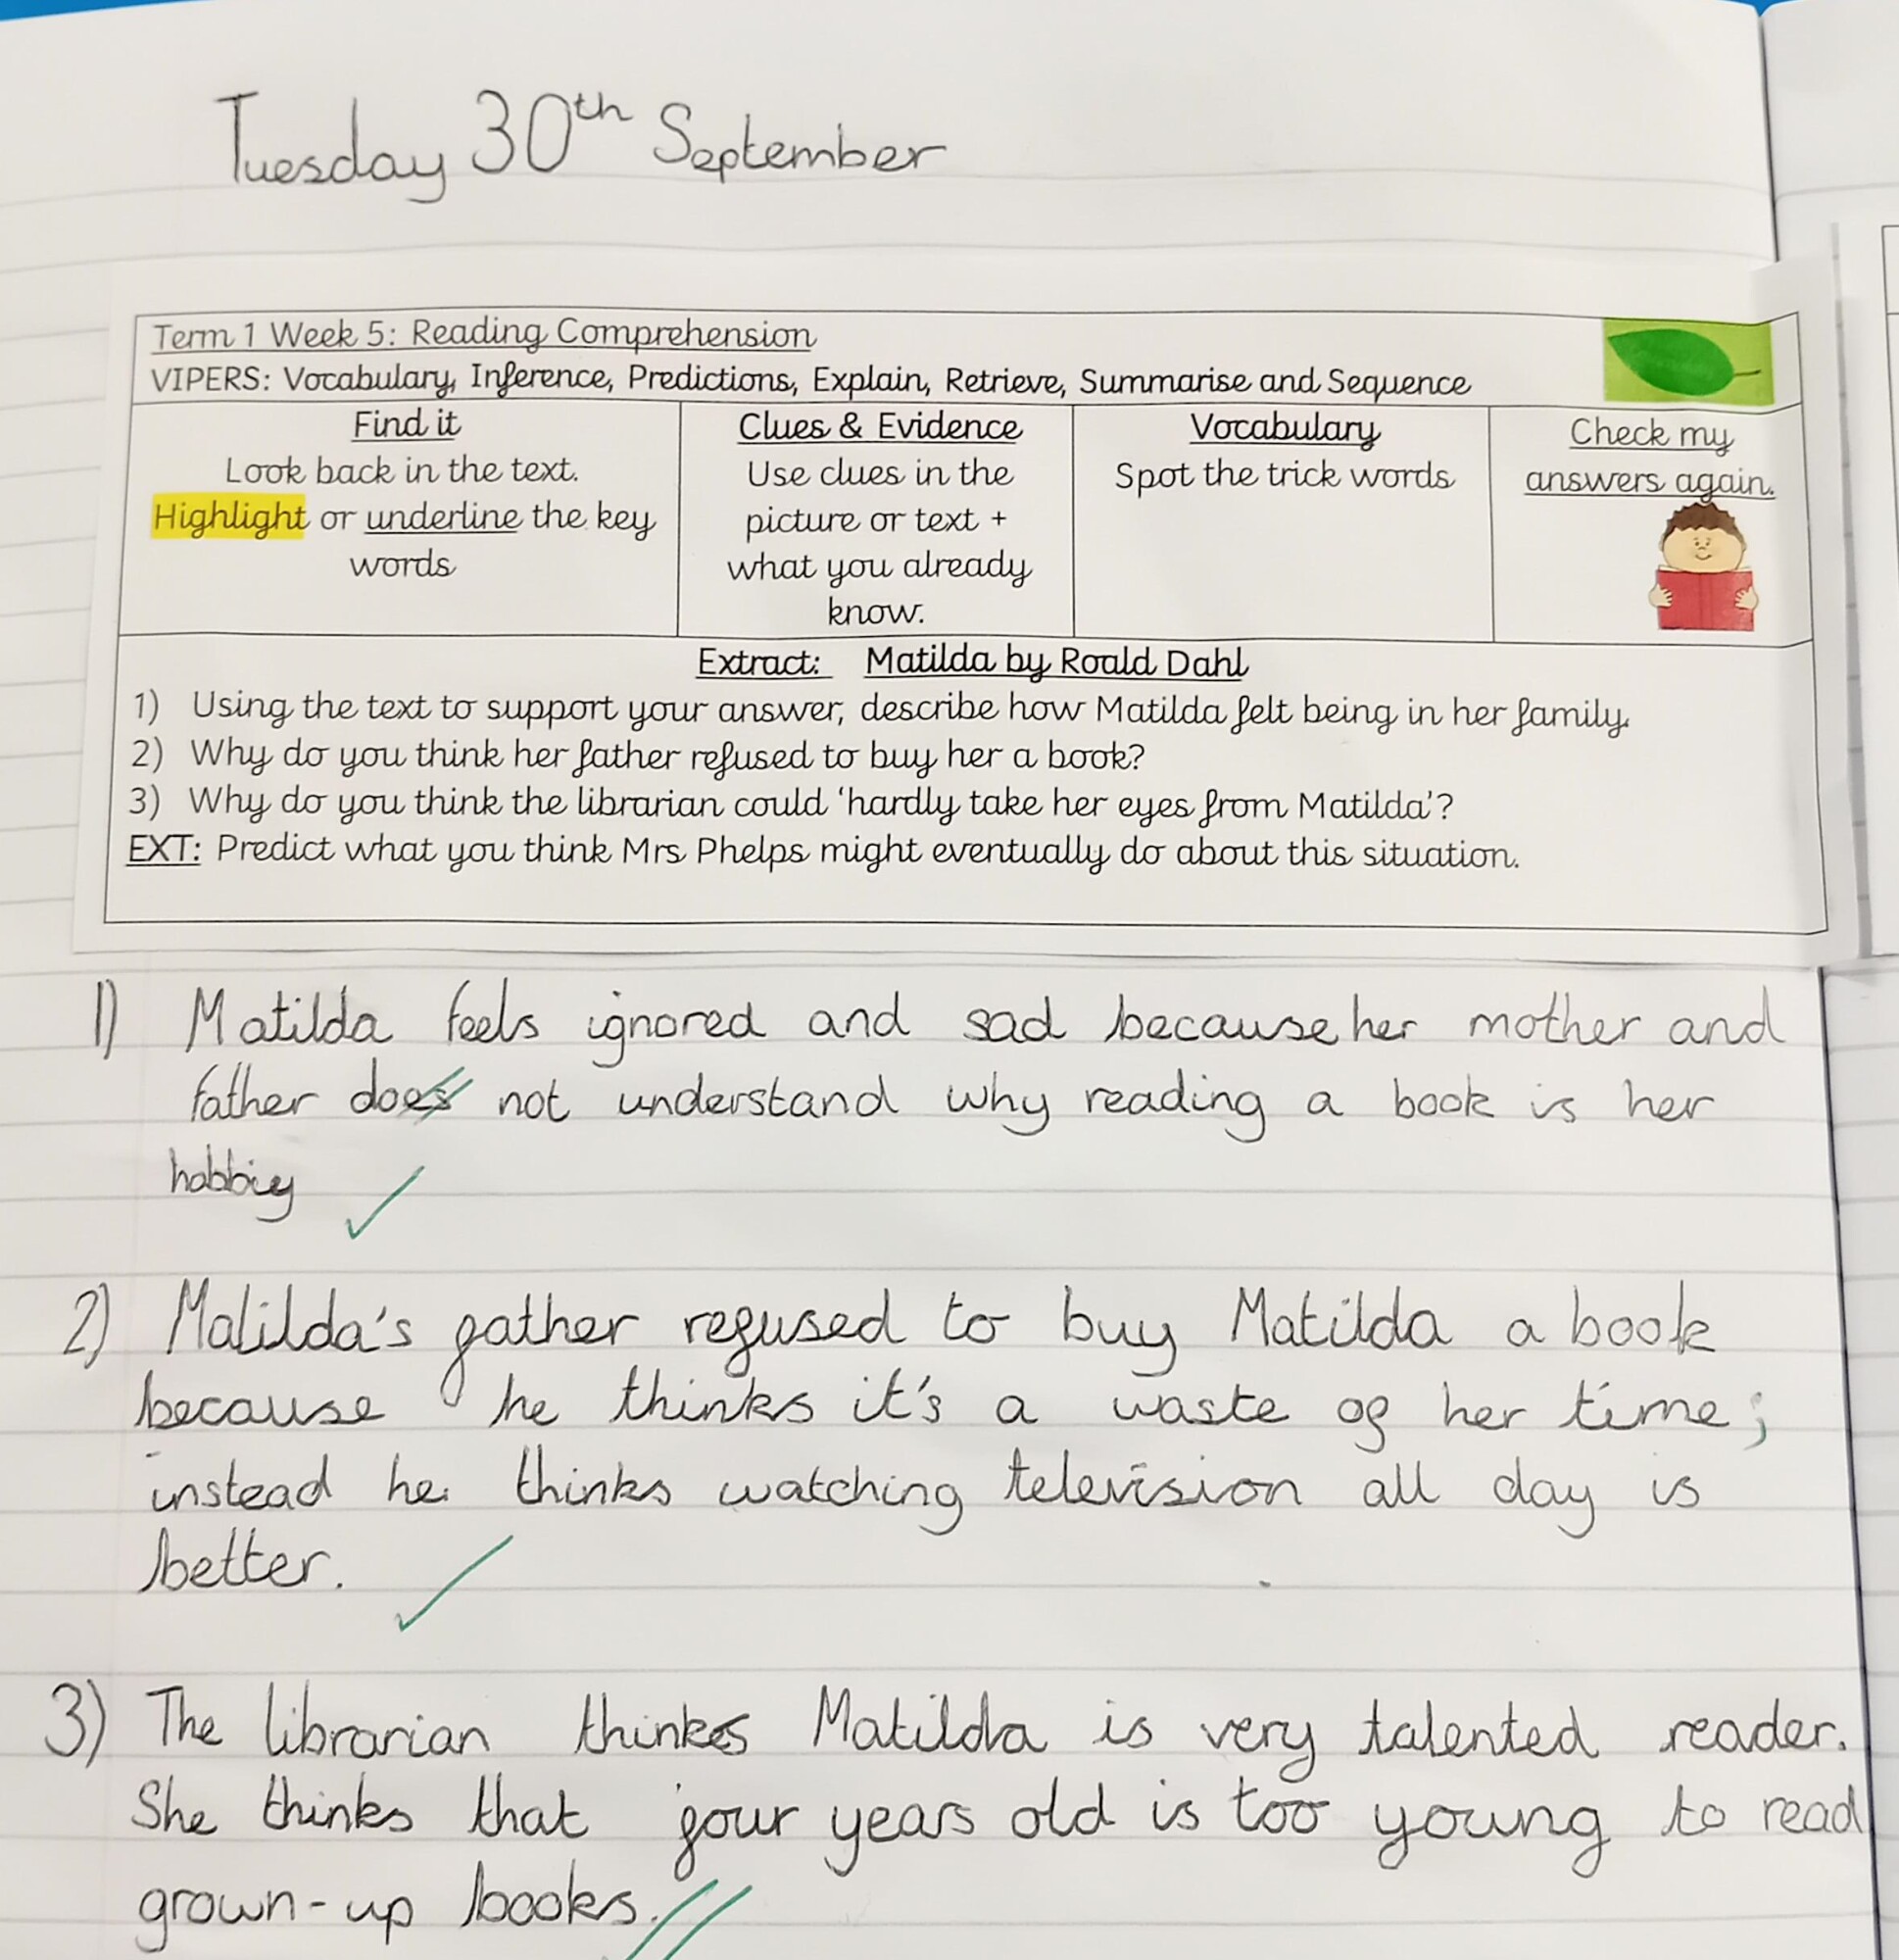 Tuesday 30th September
Term 1 Week 5: Reading Comprehension
VIPERS: Vocabulary, Inference, Predictions, Explain, Retrieve, Summarise and Sequence
Find it
Look back in the text.
Highlight or underline the key
words
Clues & Evidence
Use clues in the
picture or text +
what you already
know.
Vocabulary
Spot the trick words
Check my
answers again.
Extract: Matilda by Roald Dahl
1) Using the text to support your answer, describe how Matilda felt being in her family.
2) Why do you think her father refused to buy her a book?
3) Why do you think the librarian could 'hardly take her eyes from Matilda'?
EXT: Predict what you think Mrs Phelps might eventually do about this situation.
1) Matilda feels ignored and sad because her mother and
father does not understand why reading a book is her
hobbiy
2) Matilda's father refused to buy Matilda a book
because he thinks it's a waste of her time;
instead he thinks watching television all day is
better.
3) The librarian thinks Matilda is very talented reader.
She thinks that four years old is too young to read
grown-up books.